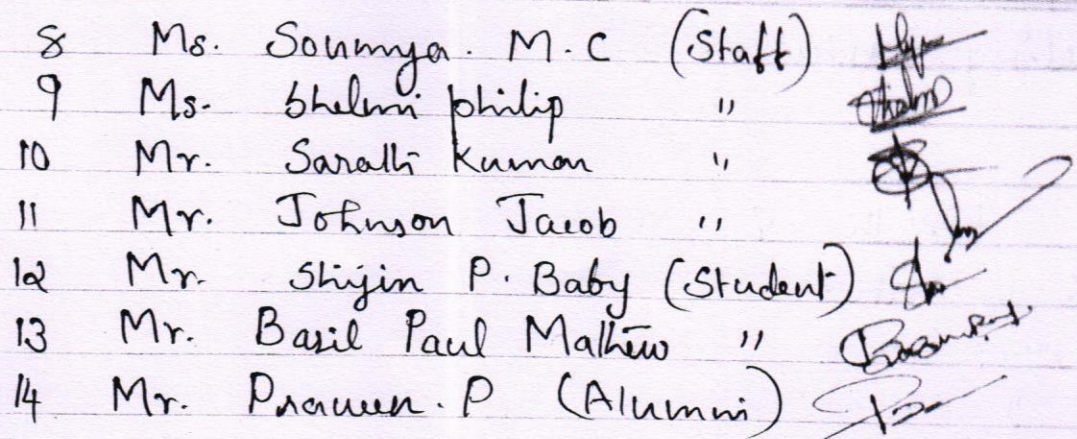 8 Ms. Soumya. M.C (Staff)
9 Ms. Shelmi philip "
10 Mr. Sarath Kumar "
11 Mr. Johnson Jacob "
12 Mr. Shijin P. Baby (Student)
13 Mr. Basil Paul Mathew "
14 Mr. Praveen. P (Alumni)